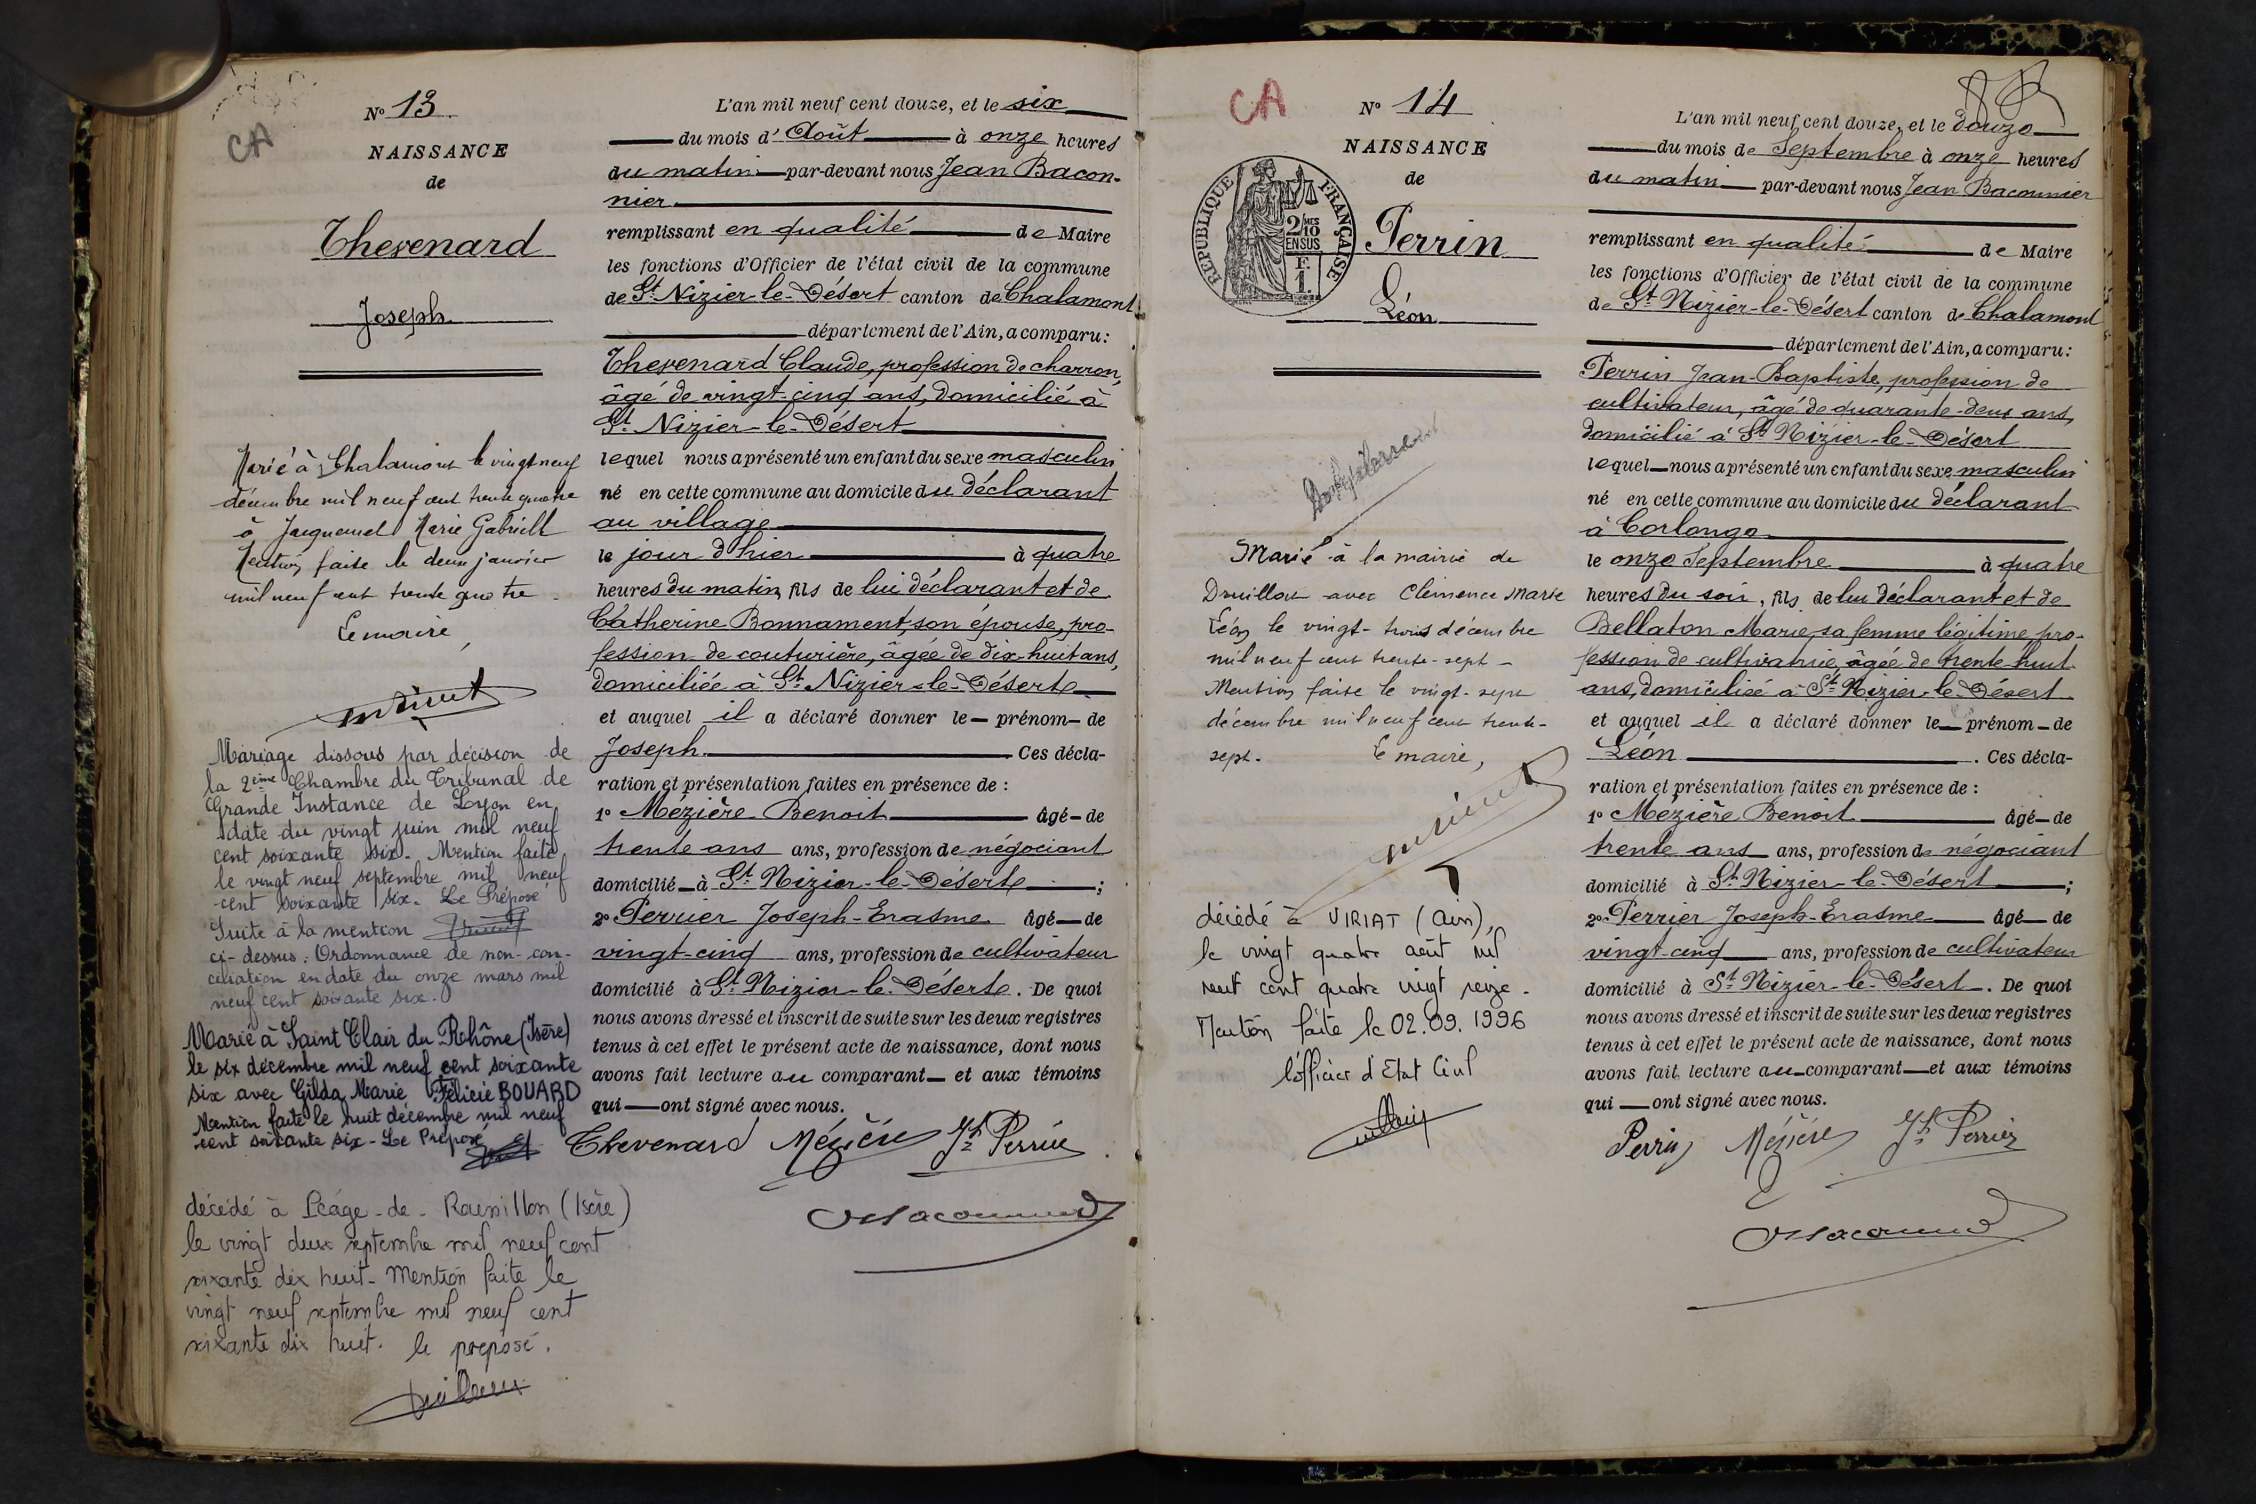 CA
N° 13
NAISSANCE
de
Thevenard
Joseph
Marié à Chalamont le vingt neuf
décembre mil neuf cent trente quatre
à Jacquemet Marie Gabrielle
Mention faite le deux janvier
mil neuf cent trente quatre.
Le maire,
Mariage dissous par décision de
la 2ème Chambre du Tribunal de
Grande Instance de Lyon en
date du vingt juin mil neuf
cent soixante six. Mention faite
le vingt neuf septembre mil neuf
cent soixante six. Le Préposé
Suite à la mention
ci-dessus : Ordonnance de non-con-
ciliation en date du onze mars mil
neuf cent soixante six.
Marié à Saint Clair du Rhône (Isère)
le six décembre mil neuf cent soixante
six avec Gilda Marie Félicie BOUARD
Mention faite le huit décembre mil neuf
cent soixante six - Le Préposé
décédé à Péage-de-Roussillon (Isère)
le vingt deux septembre mil neuf cent
soixante dix huit. Mention faite le
vingt neuf septembre mil neuf cent
soixante dix huit. le préposé.
L'an mil neuf cent douze, et le six
du mois d'Août à onze heures
du matin par-devant nous Jean Bacon-
nier
remplissant en qualité de Maire
les fonctions d'Officier de l'état civil de la commune
de St Nizier-le-Désert canton de Chalamont
département de l'Ain, a comparu :
Thevenard Claude, profession de charron,
âgé de vingt-cinq ans, domicilié à
St Nizier-le-Désert
lequel nous a présenté un enfant du sexe masculin
né en cette commune au domicile du déclarant
au village
le jour d'hier à quatre
heures du matin, fils de lui déclarant et de
Catherine Bonnament, son épouse, pro-
fession de couturière, âgée de dix-huit ans,
domiciliée à St Nizier-le-Désert
et auquel il a déclaré donner le prénom de
Joseph. Ces décla-
ration et présentation faites en présence de :
1° Mézière Benoit âgé de
trente ans ans, profession de négociant
domicilié à St Nizier-le-Désert ;
2° Perrier Joseph-Erasme âgé de
vingt-cinq ans, profession de cultivateur
domicilié à St Nizier-le-Désert. De quoi
nous avons dressé et inscrit de suite sur les deux registres
tenus à cet effet le présent acte de naissance, dont nous
avons fait lecture au comparant et aux témoins
qui ont signé avec nous.
Thevenard Mézière Jh Perrier
CA
N° 14
NAISSANCE
de
REPUBLIQUE FRANÇAISE
2/10MES
EN SUS
F.
1.
Perrin
Léon
Marié à la mairie de
Druillat avec Clémence Marie
Léon le vingt-trois décembre
mil neuf cent trente-sept -
Mention faite le vingt-sept
décembre mil neuf cent trente-
sept. Le maire,
décédé à VIRIAT (Ain),
le vingt quatre août mil
neuf cent quatre vingt seize -
Mention faite le 02.09.1996
l'officier d'Etat Civil
L'an mil neuf cent douze, et le douze
du mois de Septembre à onze heures
du matin par-devant nous Jean Baconnier
remplissant en qualité de Maire
les fonctions d'Officier de l'état civil de la commune
de St Nizier-le-Désert canton de Chalamont
département de l'Ain, a comparu :
Perrin Jean-Baptiste, profession de
cultivateur, âgé de quarante-deux ans,
domicilié à St Nizier-le-Désert
lequel nous a présenté un enfant du sexe masculin
né en cette commune au domicile du déclarant
à Corlongo
le onze Septembre à quatre
heures du soir, fils de lui déclarant et de
Bellaton Marie, sa femme légitime, pro-
fession de cultivatrice, âgée de trente-huit
ans, domiciliée à St Nizier-le-Désert
et auquel il a déclaré donner le prénom de
Léon. Ces décla-
ration et présentation faites en présence de :
1° Mézière Benoit âgé de
trente ans ans, profession de négociant
domicilié à St Nizier-le-Désert ;
2° Perrier Joseph-Erasme âgé de
vingt-cinq ans, profession de cultivateur
domicilié à St Nizier-le-Désert. De quoi
nous avons dressé et inscrit de suite sur les deux registres
tenus à cet effet le présent acte de naissance, dont nous
avons fait lecture au comparant et aux témoins
qui ont signé avec nous.
Perrin Mézière Jh Perrier